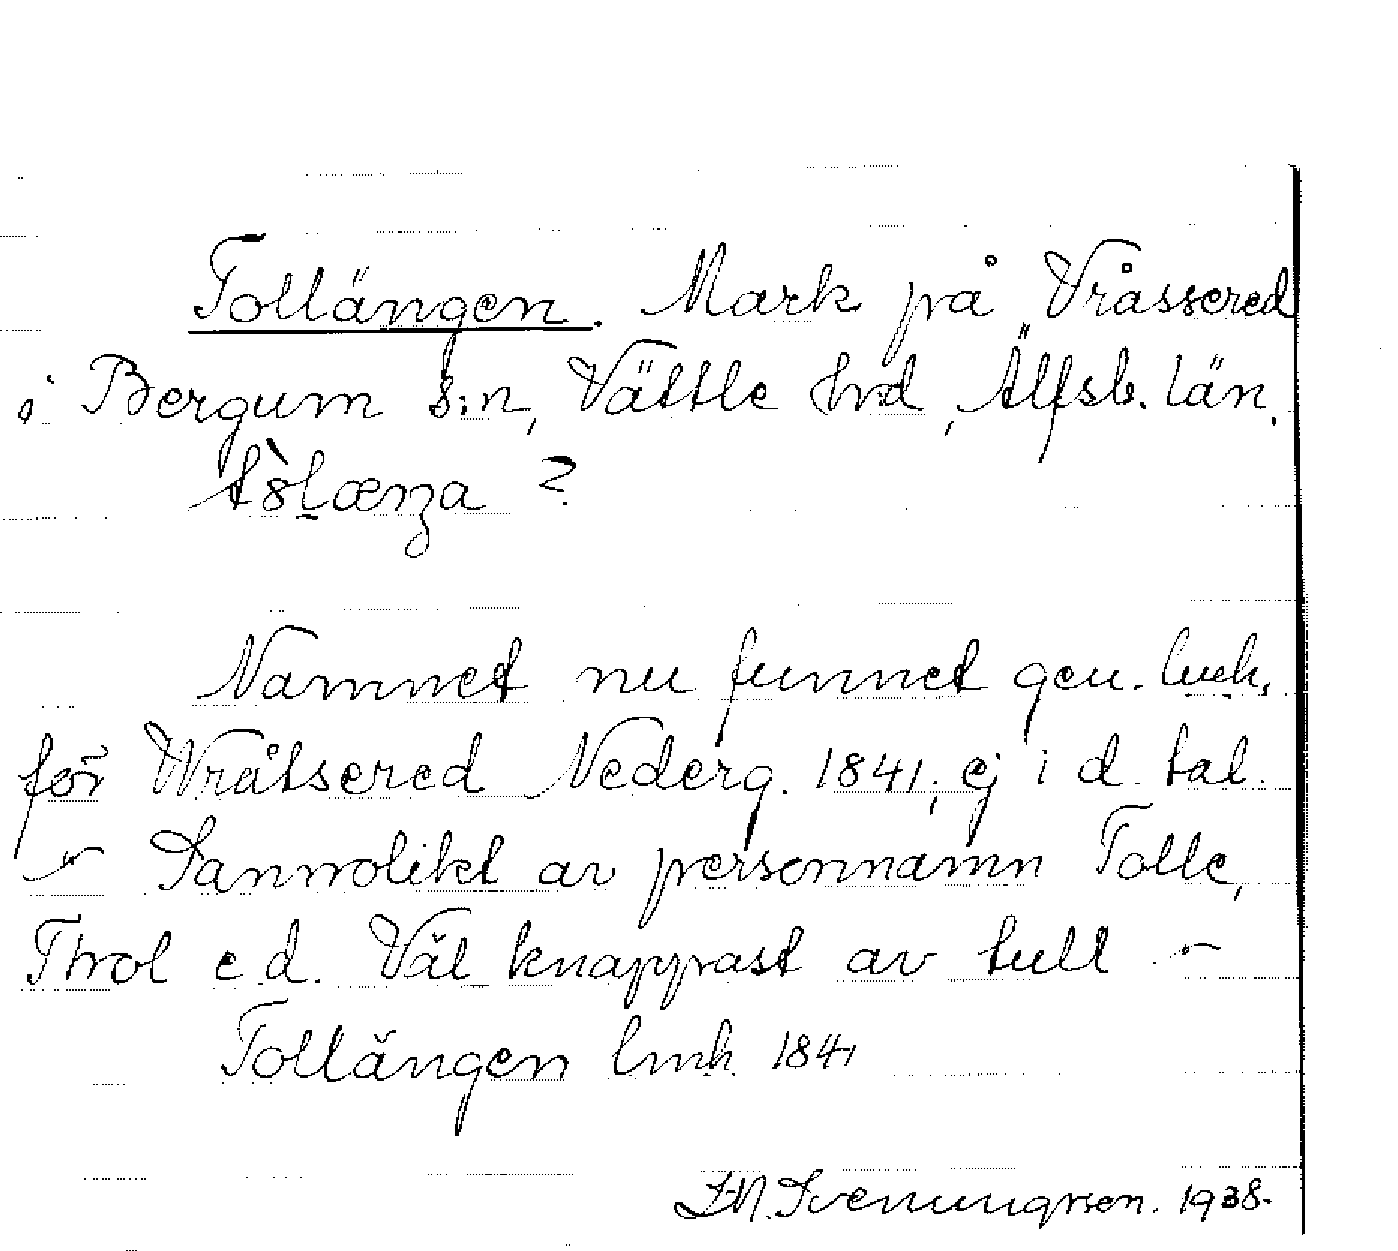 Tollängen. Mark på Vråssered
i Bergum s:n, Vättle hrd, Älfsb. län.
Namnet nu funnet gen. lmh.
för Wråtsered Nederg. 1841, ej i d. tal.
– " – Sannolikt av personnamn Tolle,
Thol e.d. Väl knappast av tull –
Tollängen lmh 1841
Svenungsson. 1938.